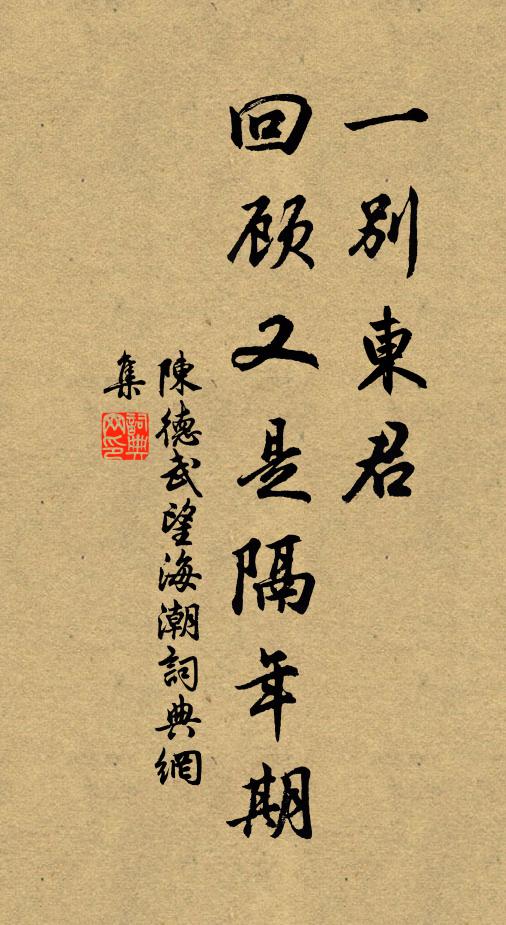 一別東君
回顾又是隔年期
陳德武望海潮詞典網
集
詞典
网印